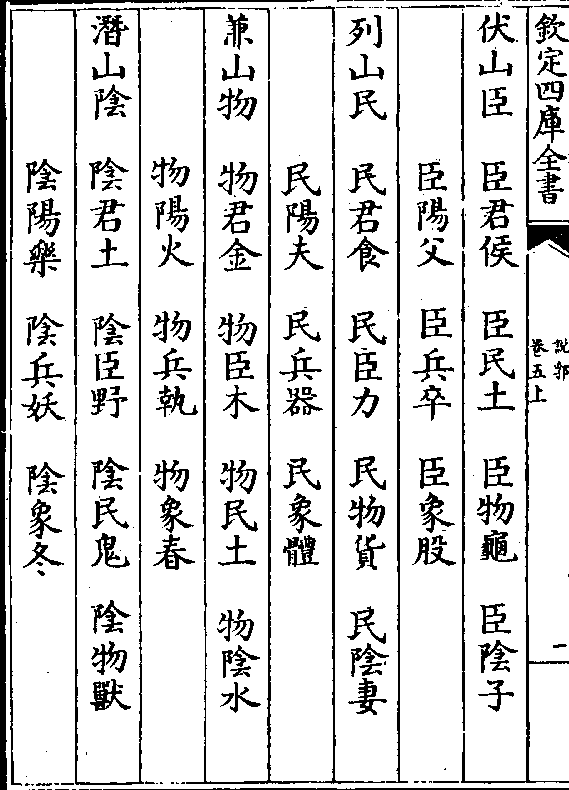 欽定四庫全書
說郛
卷五上
二
伏山臣 臣君侯 臣民土 臣物龜 臣陰子
臣陽父 臣兵卒 臣象股
列山民 民君食 民臣力 民物貨 民陰妻
民陽夫 民兵器 民象體
兼山物 物君金 物臣木 物民土 物陰水
物陽火 物兵執 物象春
潛山陰 陰君土 陰臣野 陰民鬼 陰物獸
陰陽樂 陰兵妖 陰象冬